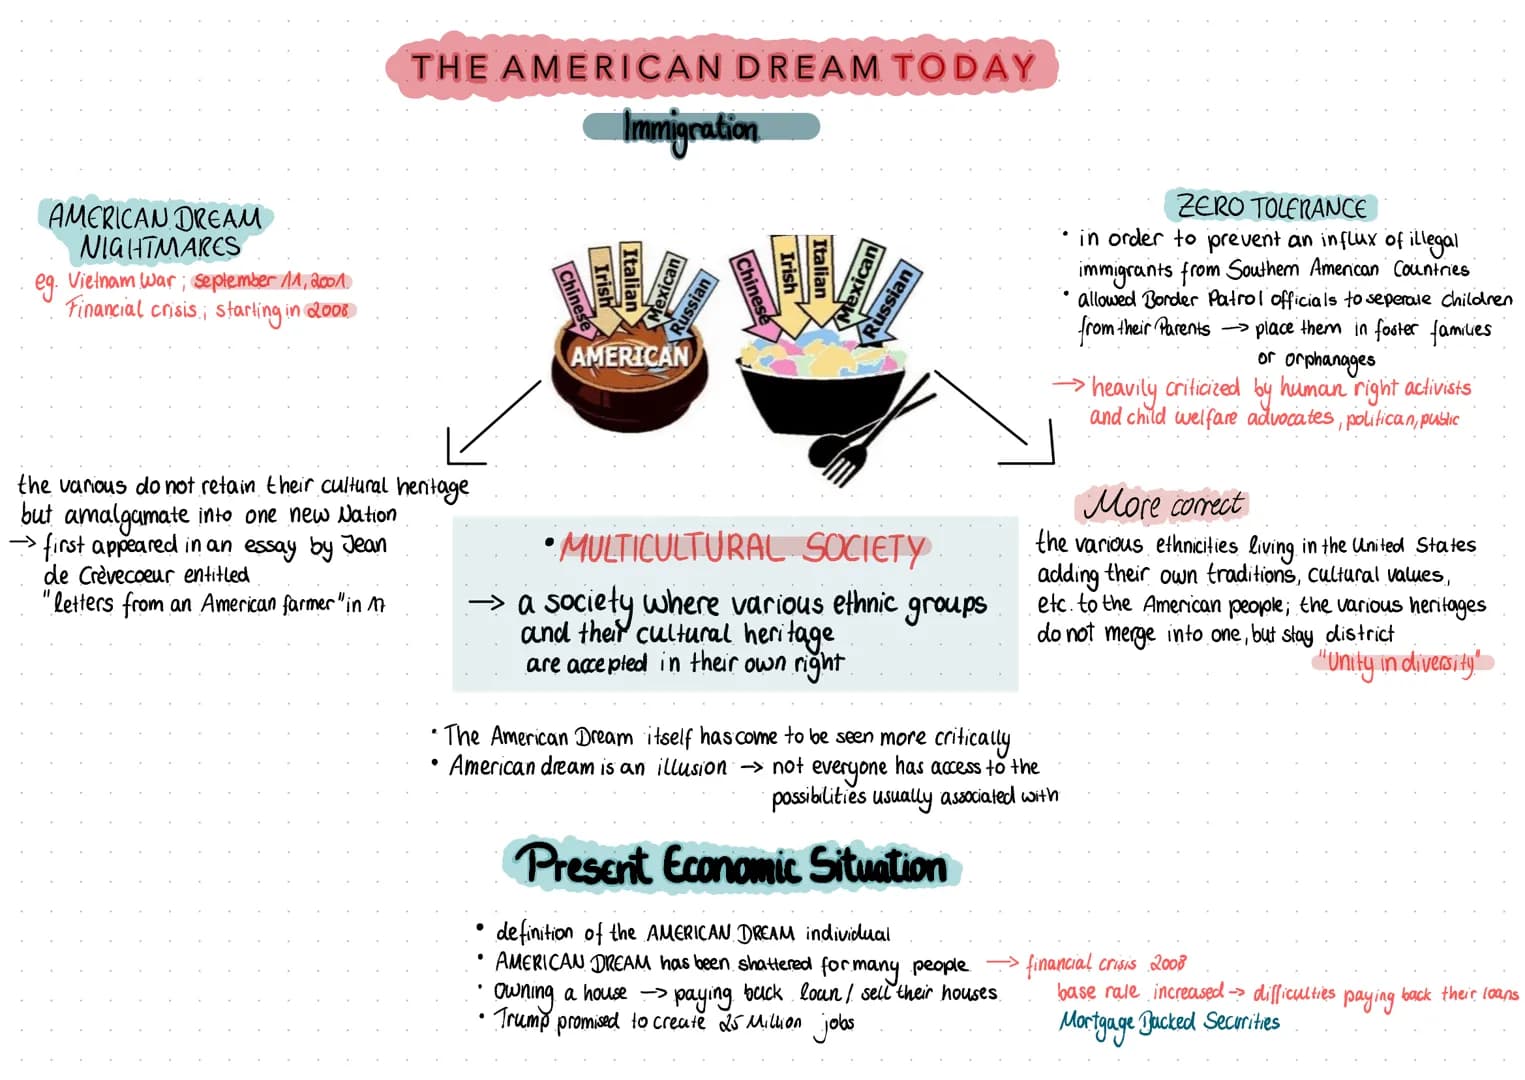 THE AMERICAN DREAM TODAY
Immigration
AMERICAN DREAM
NIGHTMARES
eg. Vietnam War ; september 11, 2001
Financial crisis ; starting in 2008
Chinese
Irish
Italian
Mexican
Russian
AMERICAN
Chinese
Irish
Italian
Mexican
Russian
ZERO TOLERANCE
• in order to prevent an influx of illegal
immigrants from Southern American Countries
• allowed Border Patrol officials to seperate children
from their Parents → place them in foster families
or orphanages
→ heavily criticized by human right activists
and child welfare advocates, politican, public
the various do not retain their cultural heritage
but amalgamate into one new Nation
→ first appeared in an essay by Jean
de Crèvecoeur entitled
"letters from an American farmer" in 17
• MULTICULTURAL SOCIETY
→ a society where various ethnic groups
and their cultural heritage
are accepted in their own right
More correct
the various ethnicities living in the United States
adding their own traditions, cultural values,
etc. to the American people; the various heritages
do not merge into one, but stay district
"Unity in diversity"
• The American Dream itself has come to be seen more critically
• American dream is an illusion → not everyone has access to the
possibilities usually associated with
Present Economic Situation
• definition of the AMERICAN DREAM individual
• AMERICAN DREAM has been shattered for many people → financial crisis 2008
• Owning a house → paying back loan / sell their houses
base rate increased → difficulties paying back their loans
• Trump promised to create 25 Million jobs
Mortgage Backed Securities